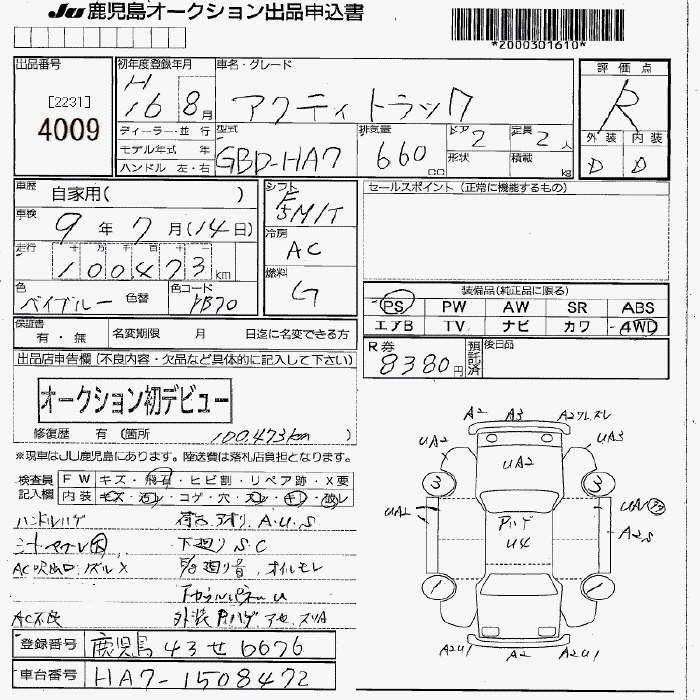 JU 鹿児島オークション出品申込書
*2000301610*
出品番号 初年度登録年月 車名・グレード 評価点
[2231] H16 8月 アクティトラック R
4009 ディーラー・並行 型式 排気量 ドア 2 定員 2人 外装 内装
モデル年式 年 GBD-HA7 660cc 形状 積載 kg D D
ハンドル 左・右
車歴 自家用( ) シフト F5M/T セールスポイント(正常に機能するもの)
車検 9年7月(14日) 冷房 AC
走行 十 万 千 百 十 一
100473km 燃料 G
色 色替 色コード PB70 装備品(純正品に限る)
PS PW AW SR ABS
エアB TV ナビ カワ 4WD
保証書 有・無 名変期限 月 日迄に名変できる方
R券 8380円 預託済 後日品
出品店申告欄(不良内容・欠品など具体的に記入して下さい)
オークション初デビュー
修復歴 有(箇所 100,473km )
※現車はJU鹿児島にあります。陸送費は落札店負担となります。
検査員 FW キズ・飛石・ヒビ割・リペア跡・X要
記入欄 内装 キズ・汚レ・コゲ・穴・スレ・キレ・破レ
ハンドルハゲ 荷台,アオリ,A.U.S
下廻りS.C
AC吹出口ノズルX 廻り音,オイルモレ
AC不良 外装Pハゲ
登録番号 鹿児島 43せ6676
車台番号 HA7-1508472
A2 A3 A2ワレズレ
UA2 UA2 UA3
3 3
Pハゲ
U4
A2S
1 1
A2U1 A2 A2U1